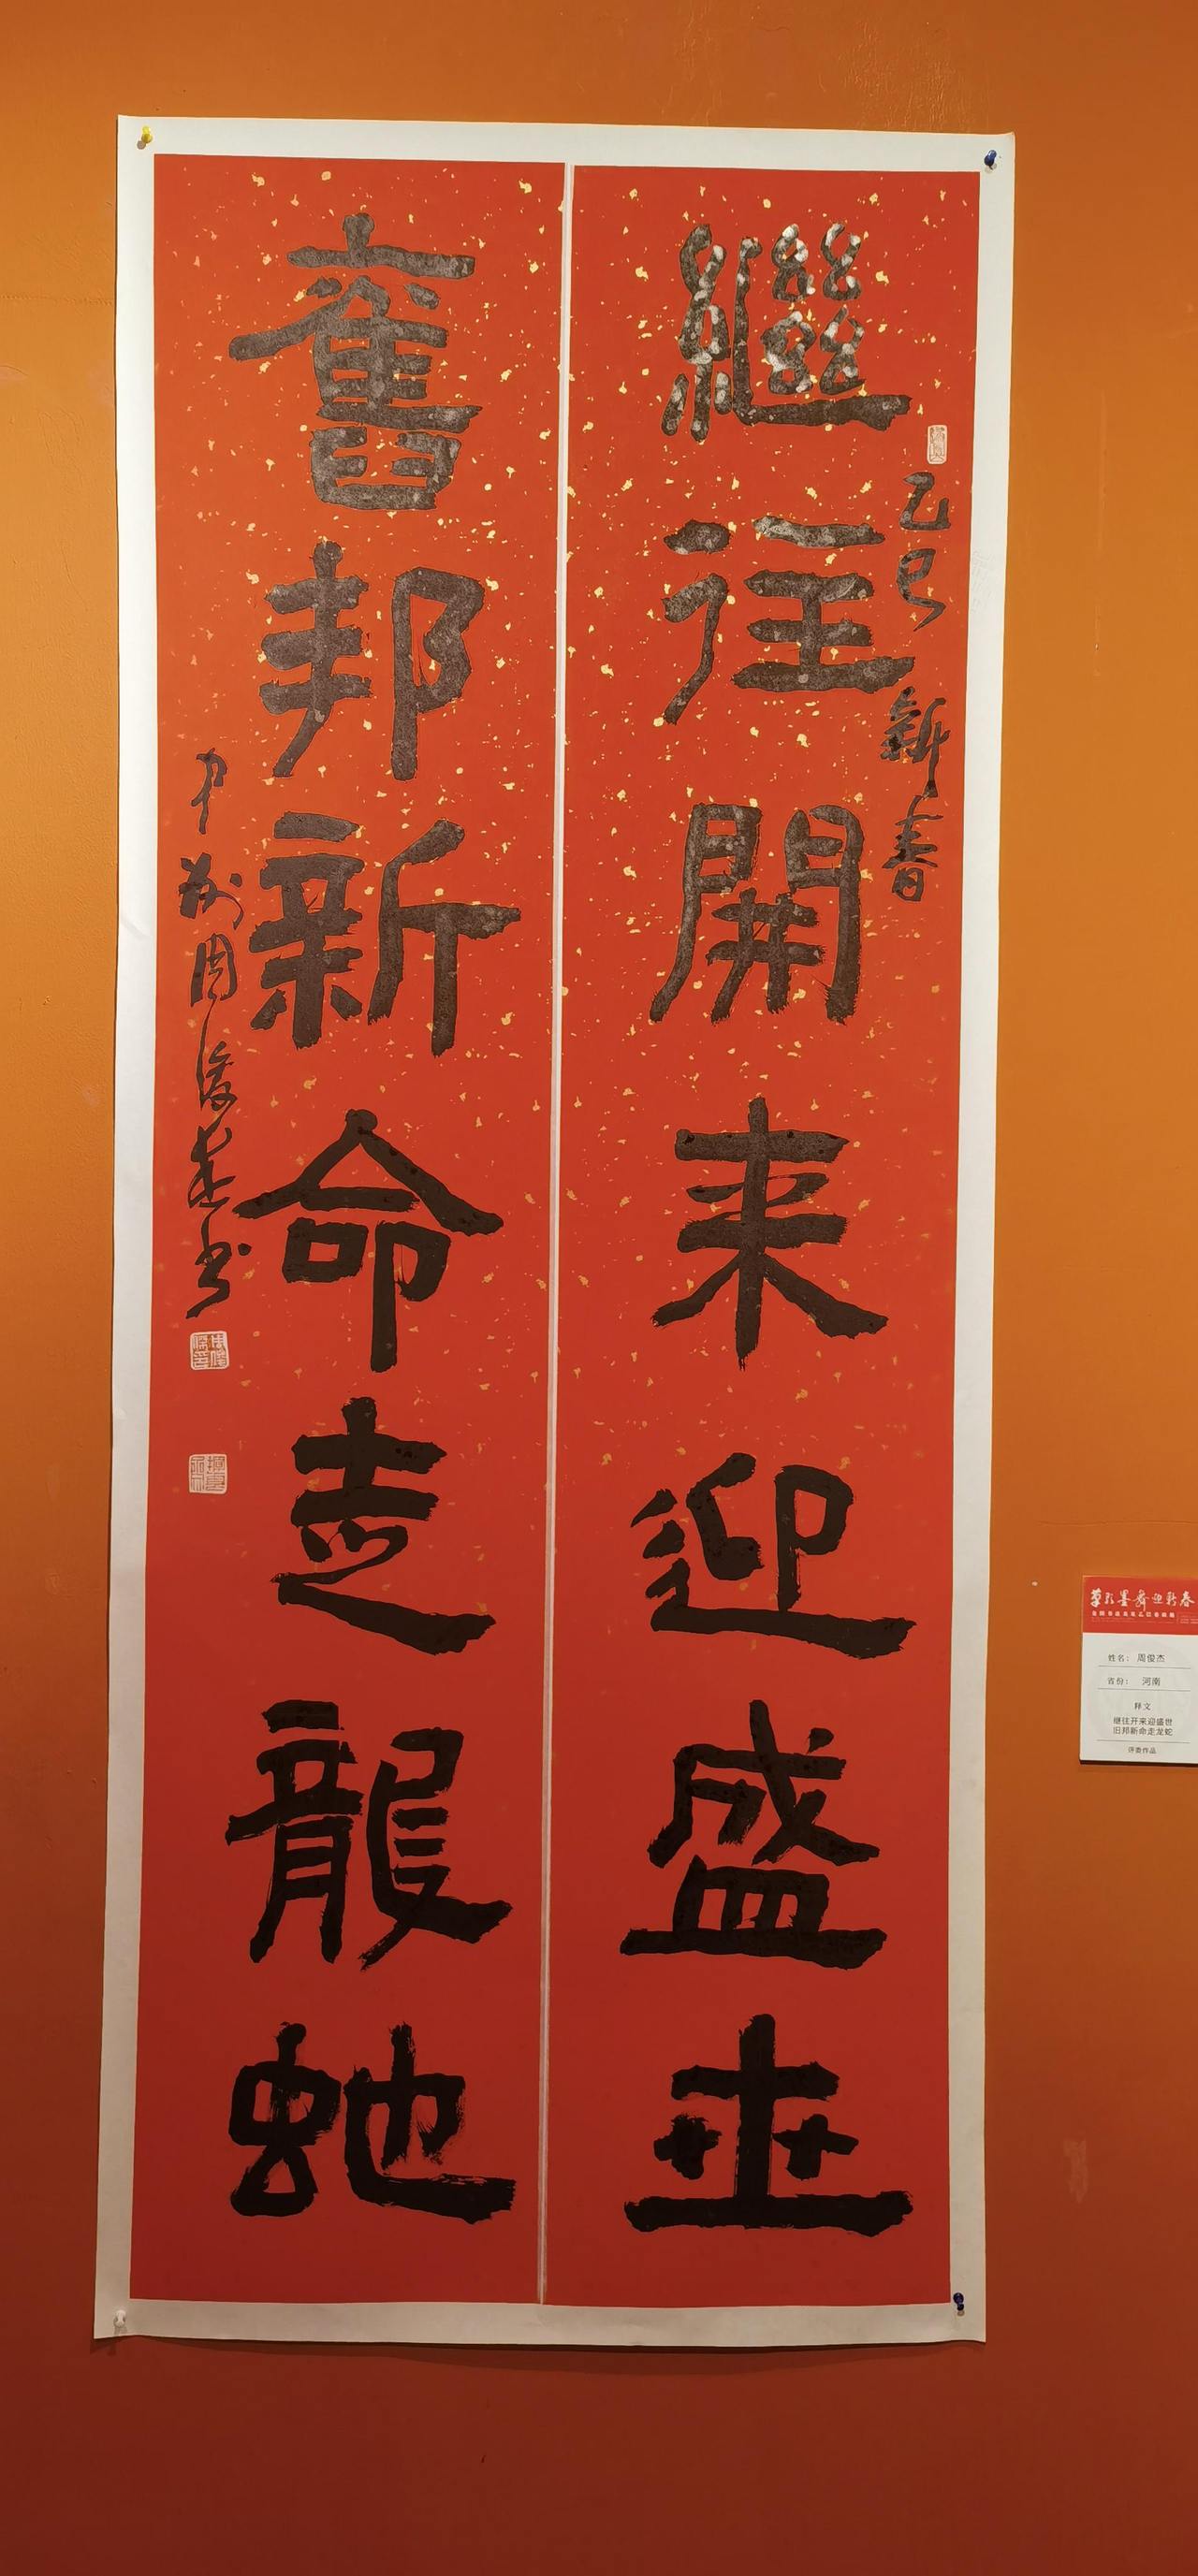 繼往開来迎盛世
乙巳新春
舊邦新命走龍蛇
中州周俊杰书
草彩墨舞迎新春
姓名：周俊杰
省份：河南
释文
继往开来迎盛世
旧邦新命走龙蛇
评委作品